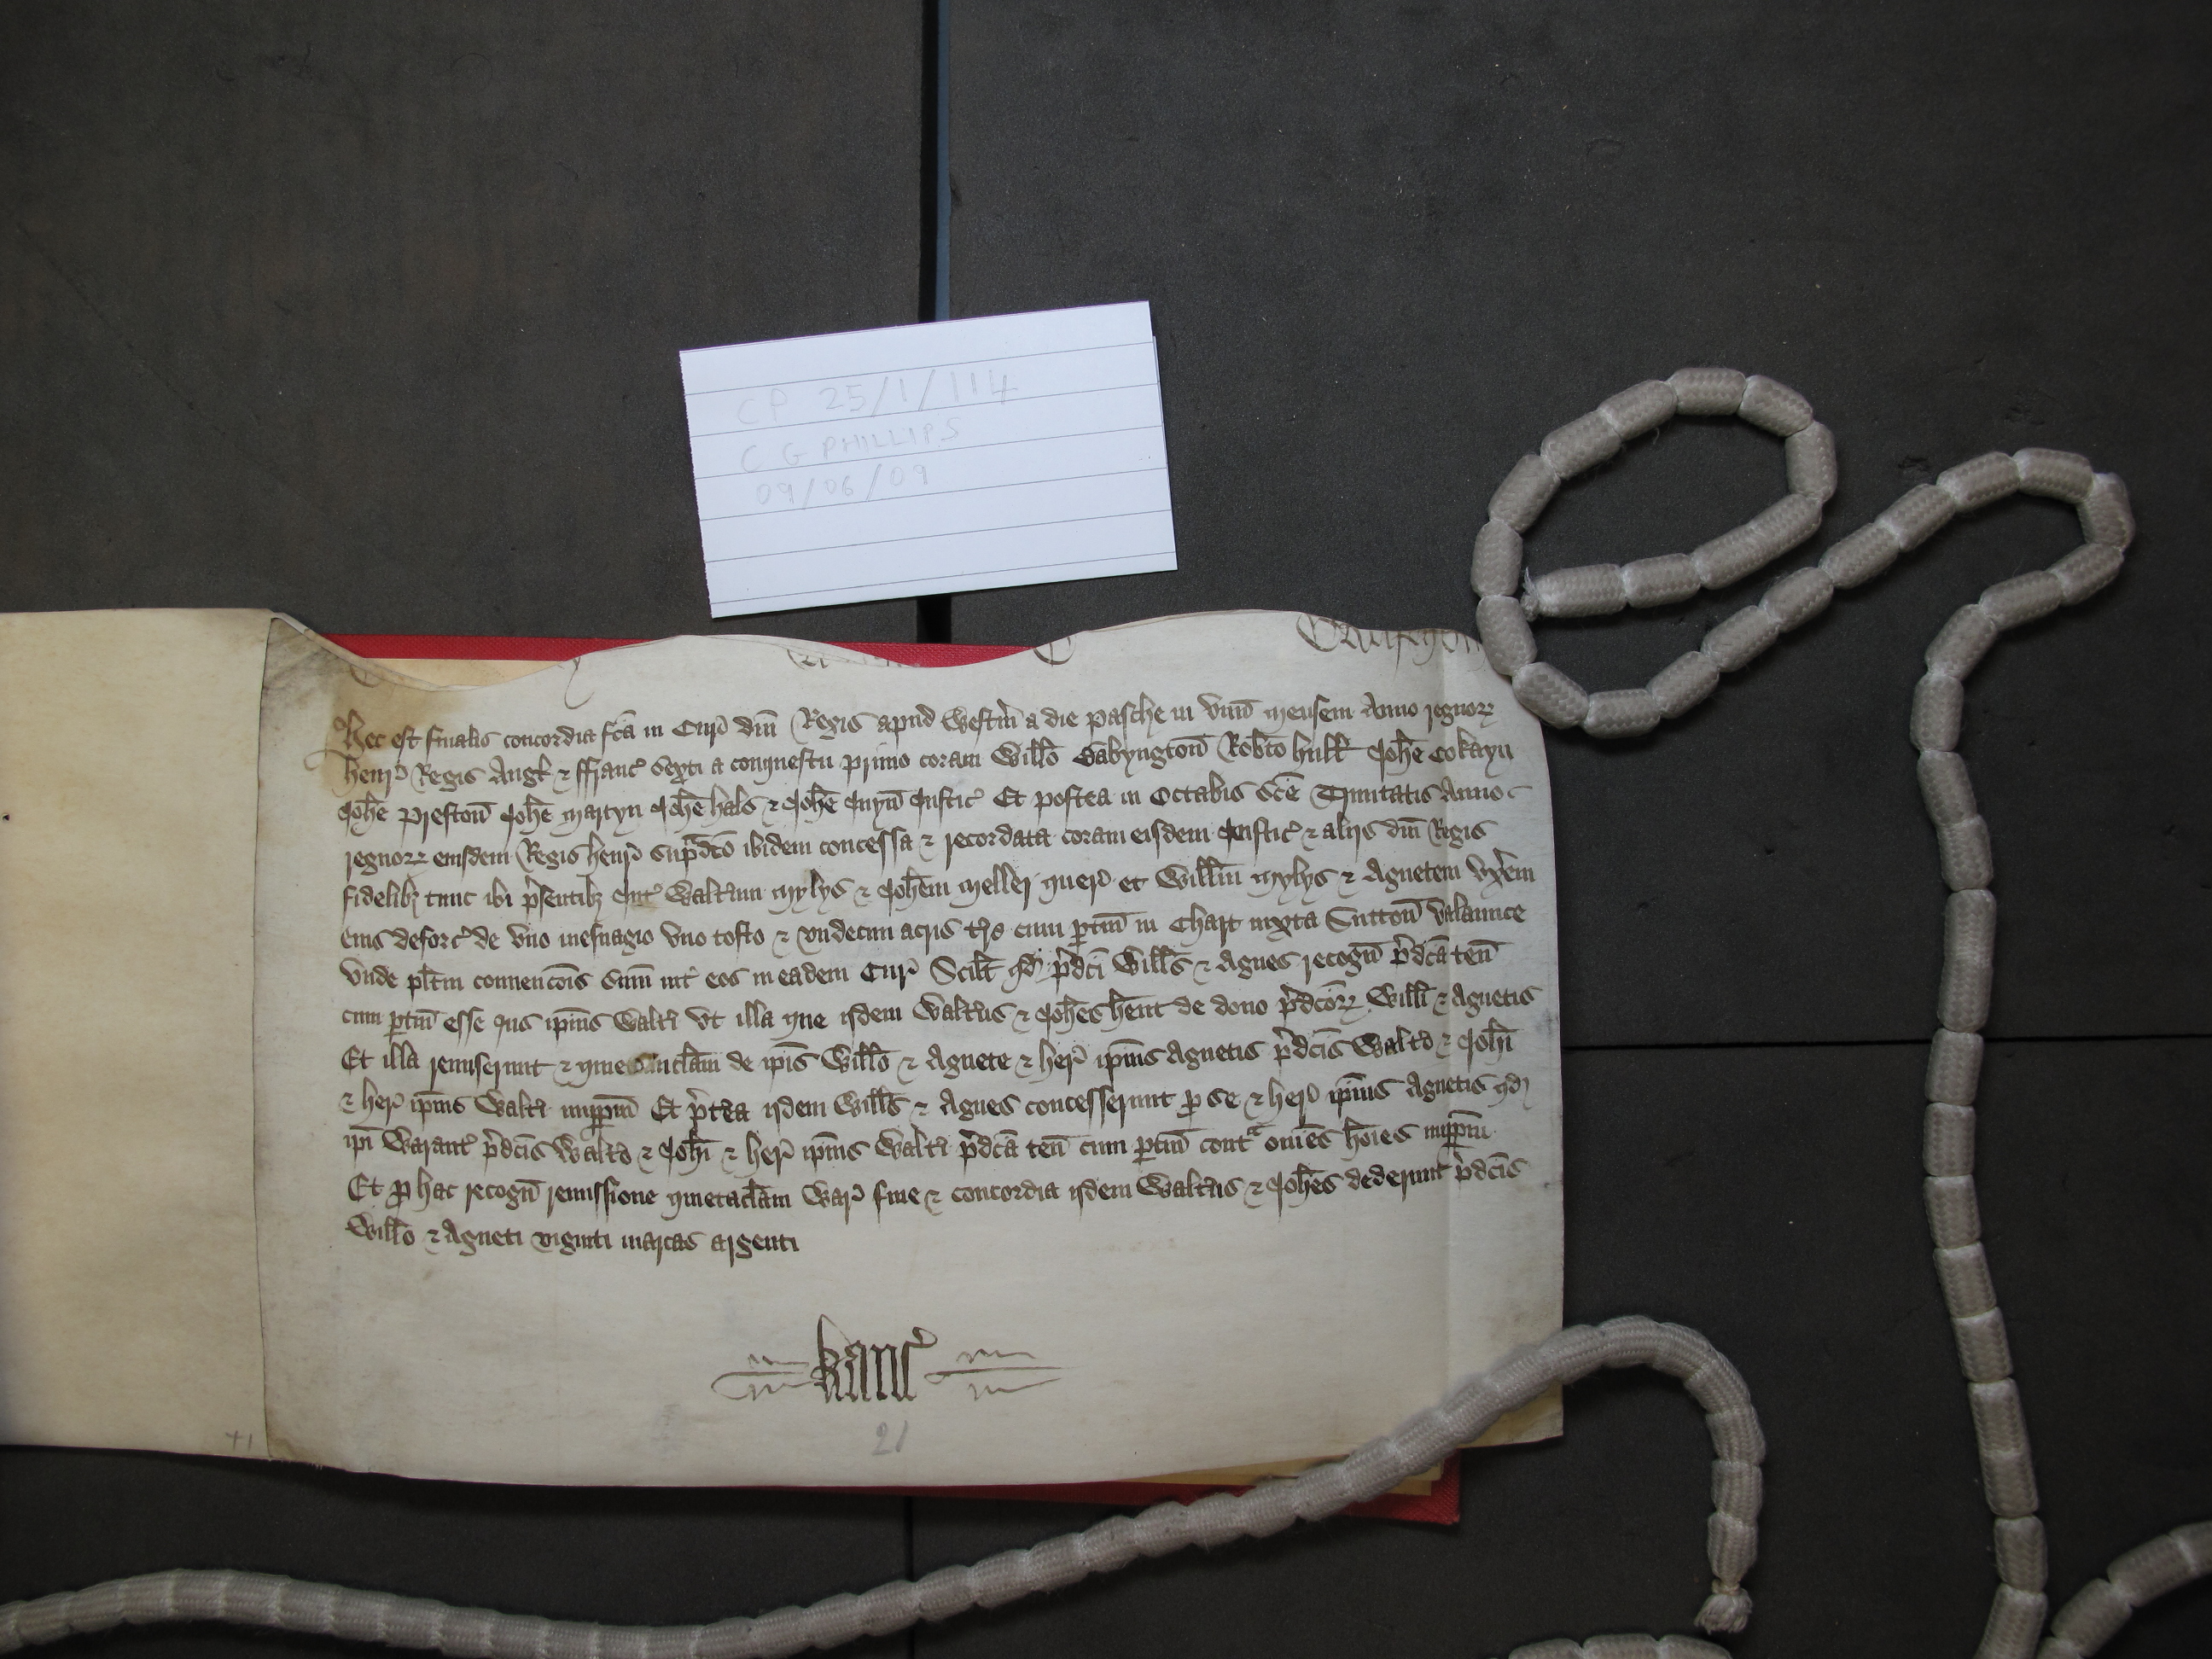 CP 25/1/114
C G PHILLIPS
09/06/09
Hec est finalis concordia fc̄a in Cur̉ dn̄i Regis apud Westm̄ a die Pasche in vnū mensem Anno regnoꝝ
Henr̉ Regis Angl̄ ⁊ Ffranc̉ sexti a conquestu primo coram Willo̅ Babyngton̄ Rob̄to Hull̄ Joh̄e Cokayn
Joh̄e Preston̄ Joh̄e Martyn Joh̄e Hals ⁊ Joh̄e Juyn̄ Justic̉ Et postea in Octabis sc̄e Trinitatis Anno
regnoꝝ eiusdem Regis Henr̉ sup̄dc̄o ibidem concessa ⁊ recordata coram eisdem Justic̉ ⁊ alijs dn̄i Regis
fidelibꝫ tunc ibi p̄sentibꝫ Int̉ Walt̄um Mylys ⁊ Joh̄em Meller quer̉ et Willm̄ Mylys ⁊ Agnetem vx̄em
eius deforc̉ de vno mesuagio vno tofto ⁊ vndecim acris t̉re cum ꝑtin̄ in Chart iuxta Sutton̄ Valaunce
Vnde pl̄itm conuenc̄ois sum̄ int̉ eos in eadem Cur̉ Scilt̄ qd̄ p̄dc̄i Will̄s ⁊ Agnes recogn̄ p̄dc̄a ten̄
cum ꝑtin̄ esse Jus ip̄ius Walt̄i vt illa que ijdem Walt̄us ⁊ Joh̄es hent̄ de dono p̄dc̄oꝝ Willi̅ ⁊ Agnetis
Et illa remiserunt ⁊ quietumclam̄ de ip̄is Willo̅ ⁊ Agnete ⁊ her̉ ip̄ius Agnetis p̄dc̄is Walt̄o ⁊ Joh̄i
⁊ her̉ ip̄ius Walt̄i imꝑpm̄ Et p̄t̄ea ijdem Will̄s ⁊ Agnes concesserunt ꝑ se ⁊ her̉ ip̄ius Agnetis qd̄
ip̄i Warant̉ p̄dc̄is Walt̄o ⁊ Joh̄i ⁊ her̉ ip̄ius Walt̄i p̄dc̄a ten̄ cum ꝑtin̄ cont̉ om̄es ho̅ies imꝑpm̄
Et ꝓ hac recogn̄ remissione quietaclam̄ War̉ fine ⁊ concordia ijdem Walt̄us ⁊ Joh̄es dederunt p̄dc̄is
Willo̅ ⁊ Agneti viginti marcas argenti
kanc̉
21